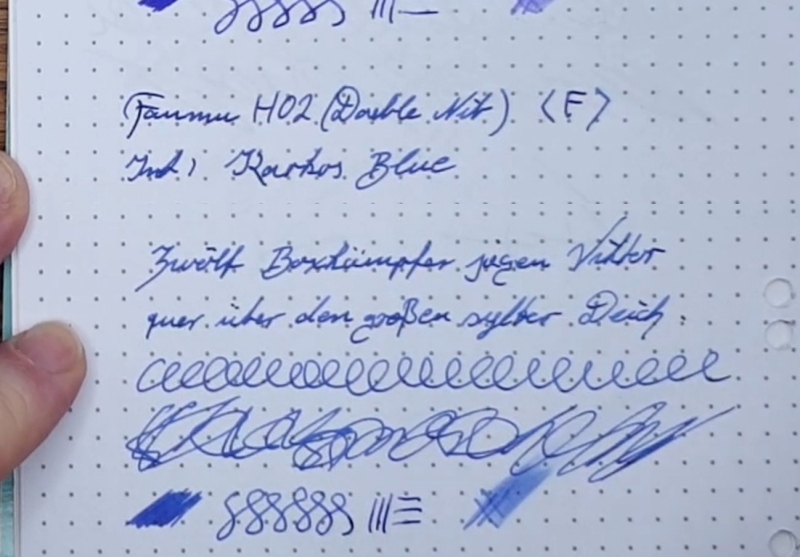 (Fanmu H02 (Double Nib) <F>
Ink: Kaukos Blue
Zwölf Boxkämpfer jagen Viktor
quer über den großen sylter Deich.